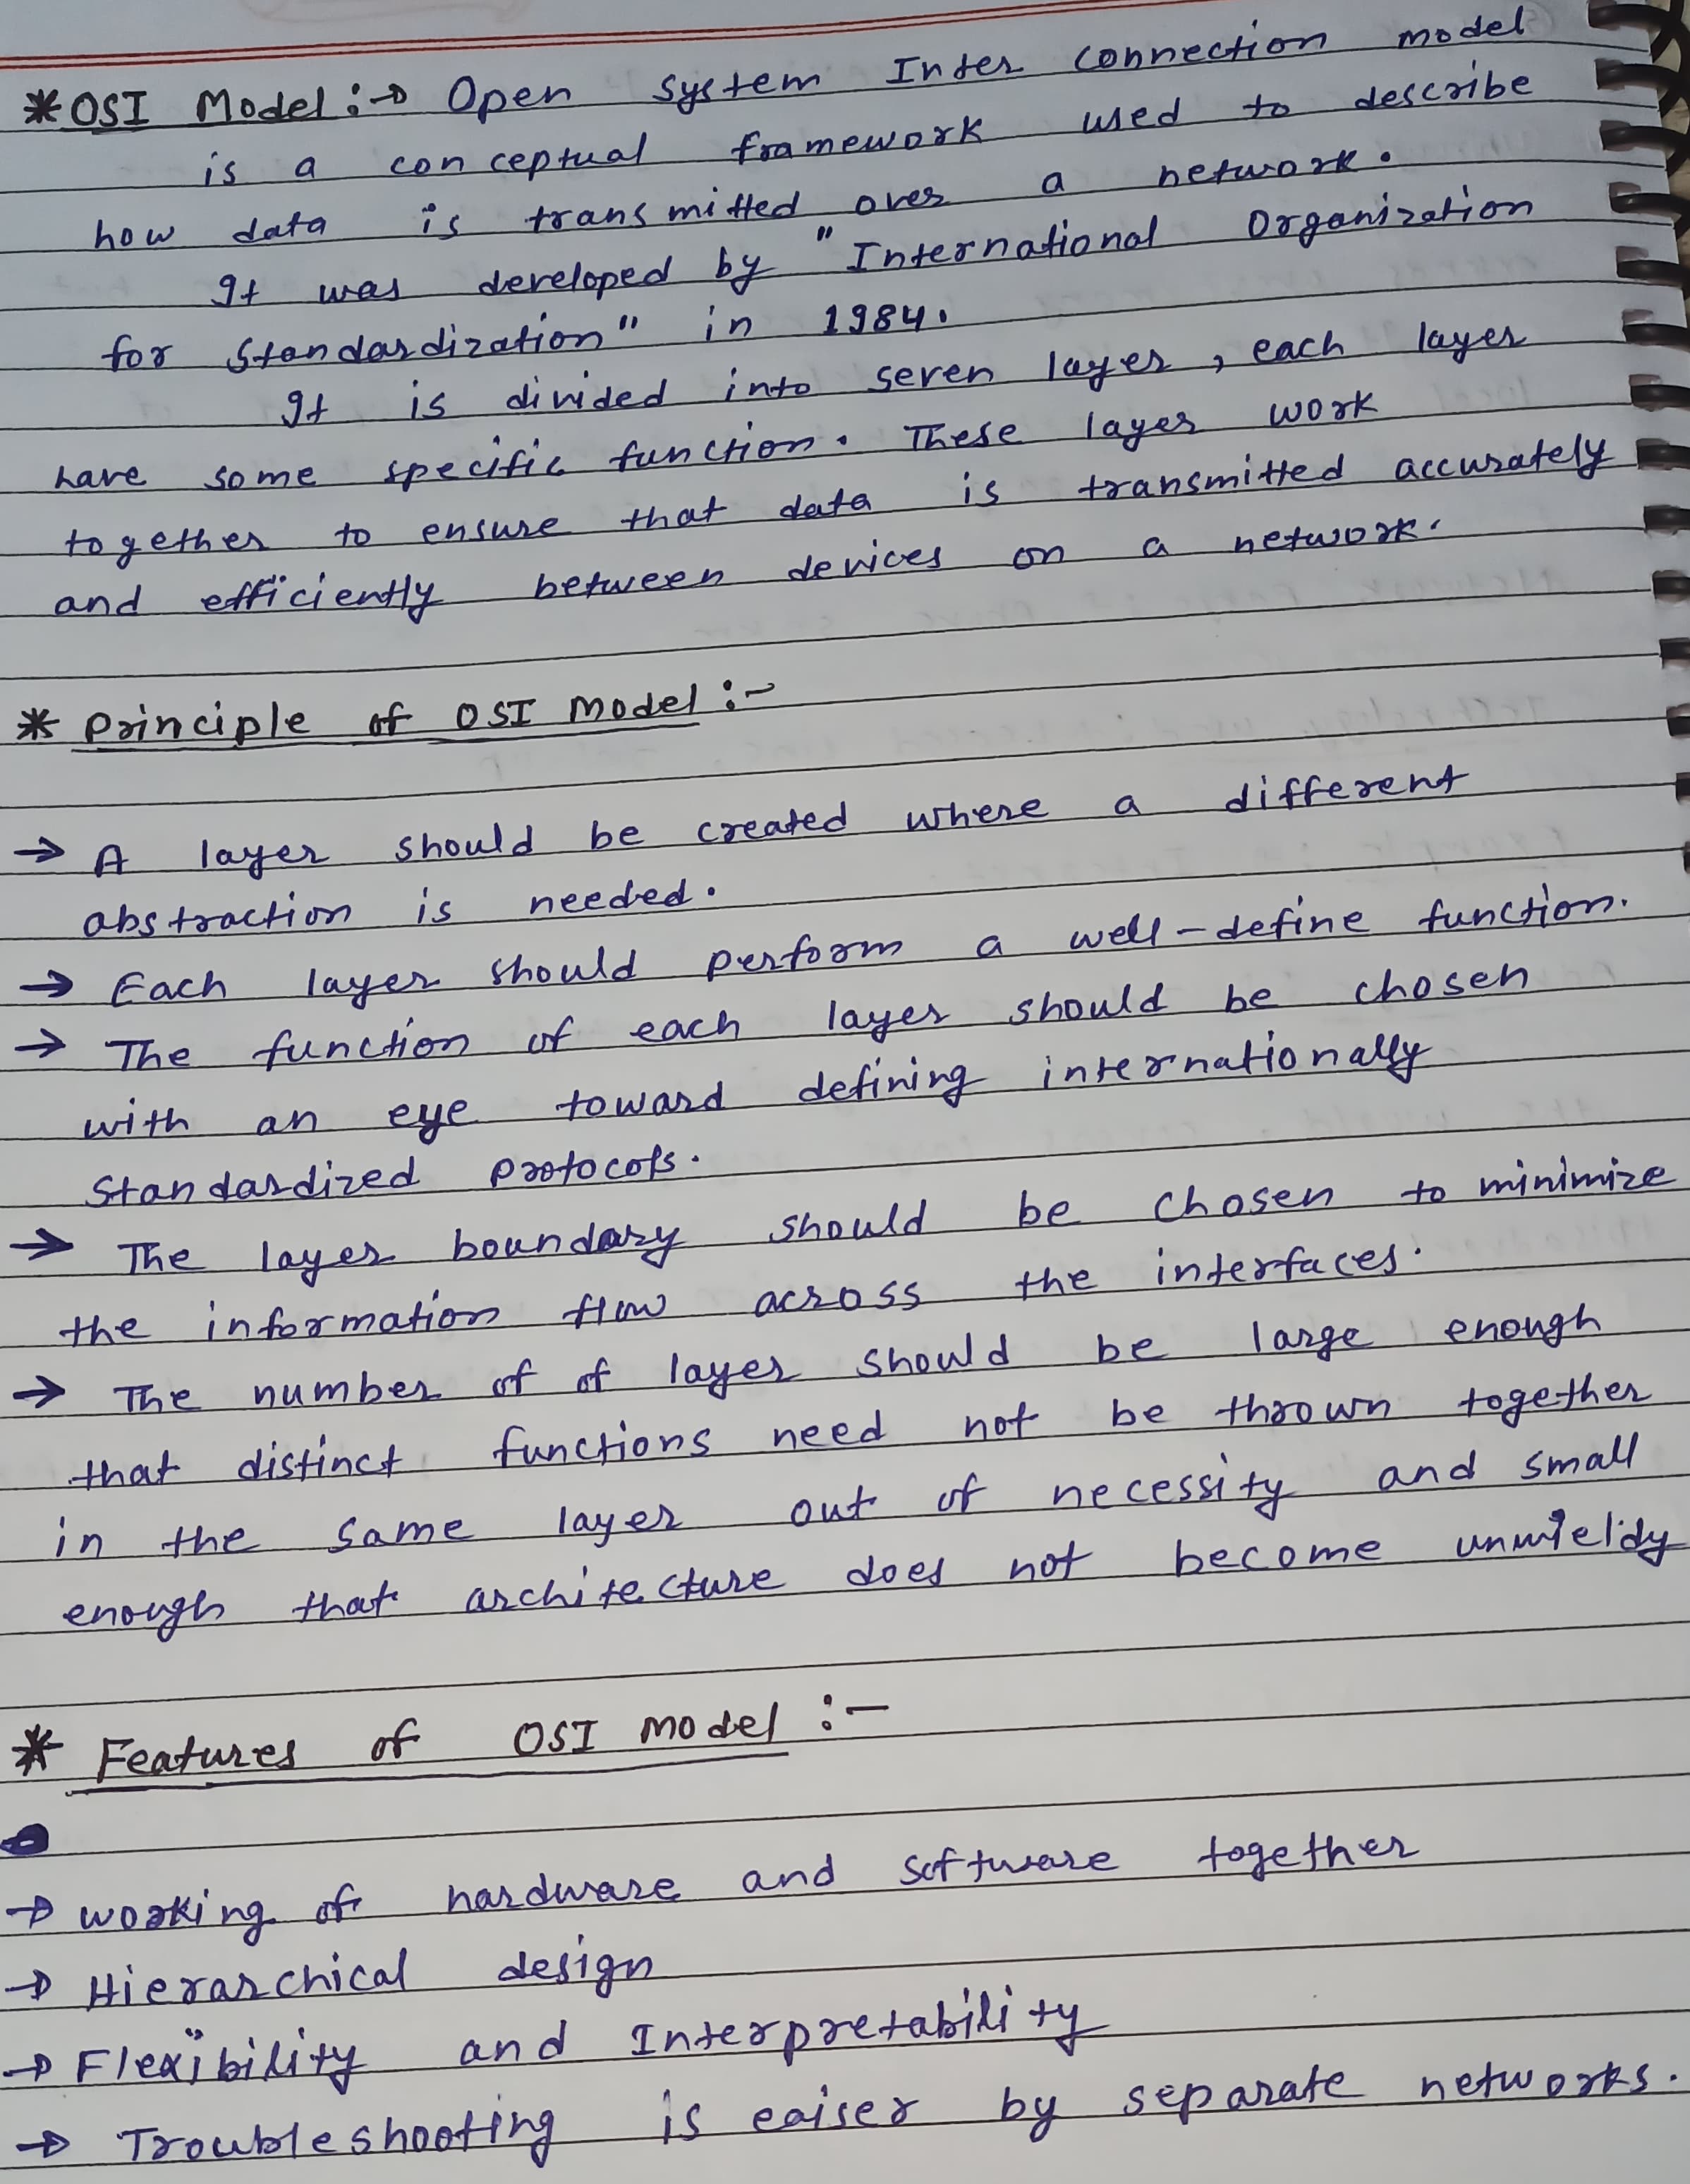 * OSI Model :→ Open system Inter connection model
is a conceptual framework used to describe
how data is transmitted over a network.
It was developed by "International Organization
for Standardization" in 1984.
It is divided into seven layer, each layer
have some specific function. These layer work
together to ensure that data is transmitted accurately
and efficiently between devices on a network.
* Principle of OSI Model :-
→ A layer should be created where a different
abstraction is needed.
→ Each layer should perform a well-define function.
→ The function of each layer should be chosen
with an eye toward defining internationally
Standardized protocols.
→ The layer boundary should be chosen to minimize
the information flow across the interfaces.
→ The number of of layer should be large enough
that distinct functions need not be thrown together
in the same layer out of necessity and small
enough that architecture does not become unwieldy
* Features of OSI model :-
→ working of hardware and software together
→ Hierarchical design
→ Flexibility and Interpretability
→ Troubleshooting is eaiser by separate networks.